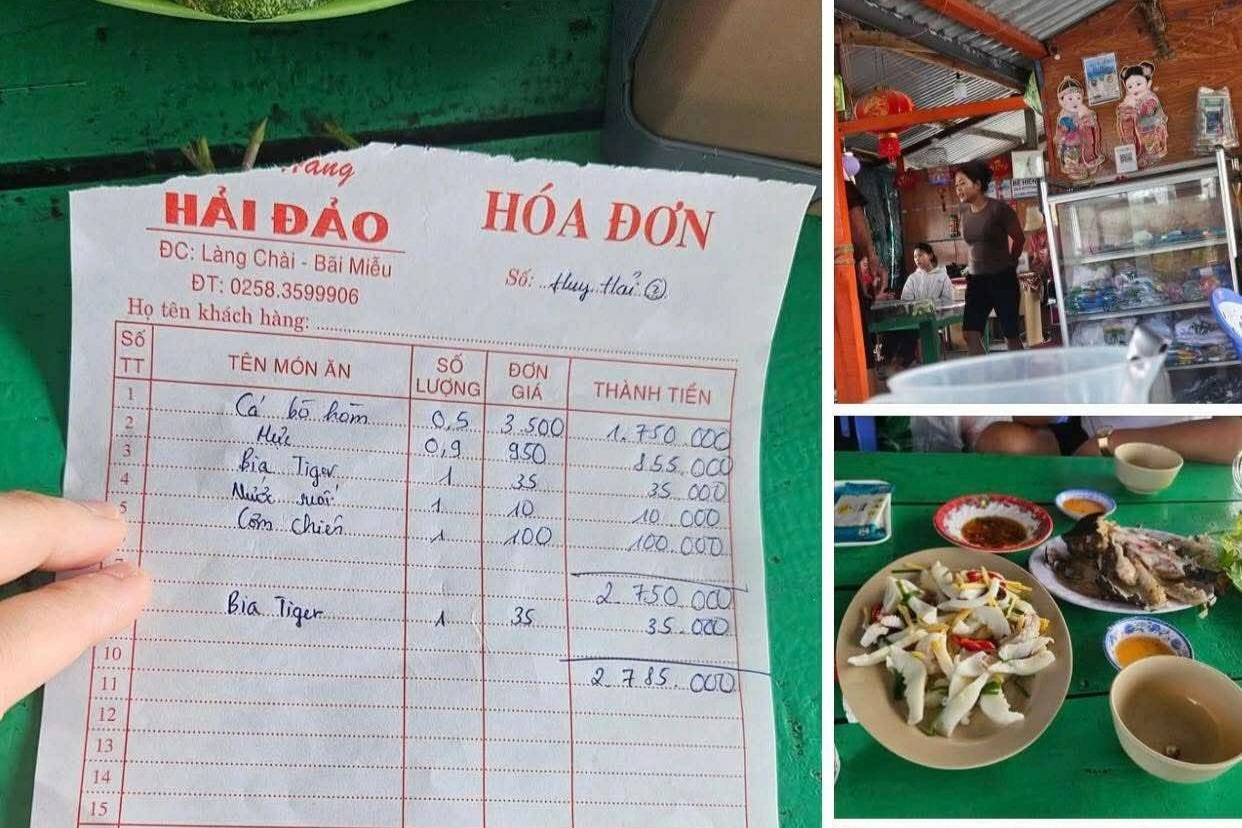 HẢI ĐẢO
ĐC: Làng Chài - Bãi Miễu
ĐT: 0258.3599906
HÓA ĐƠN
Số: Huy Hải 2
Họ tên khách hàng:
Số TT TÊN MÓN ĂN SỐ LƯỢNG ĐƠN GIÁ THÀNH TIỀN
1 Cá bò hòm 0,5 3.500 1.750.000
2 Mực 0,9 950 855.000
3 Bia Tiger 1 35 35 000
4 Nước suối 1 10 10 000
5 Cơm chiên 1 100 100.000
2 750 000
Bia Tiger 1 35 35.000
10
2 785.000
11
12
13
14
15